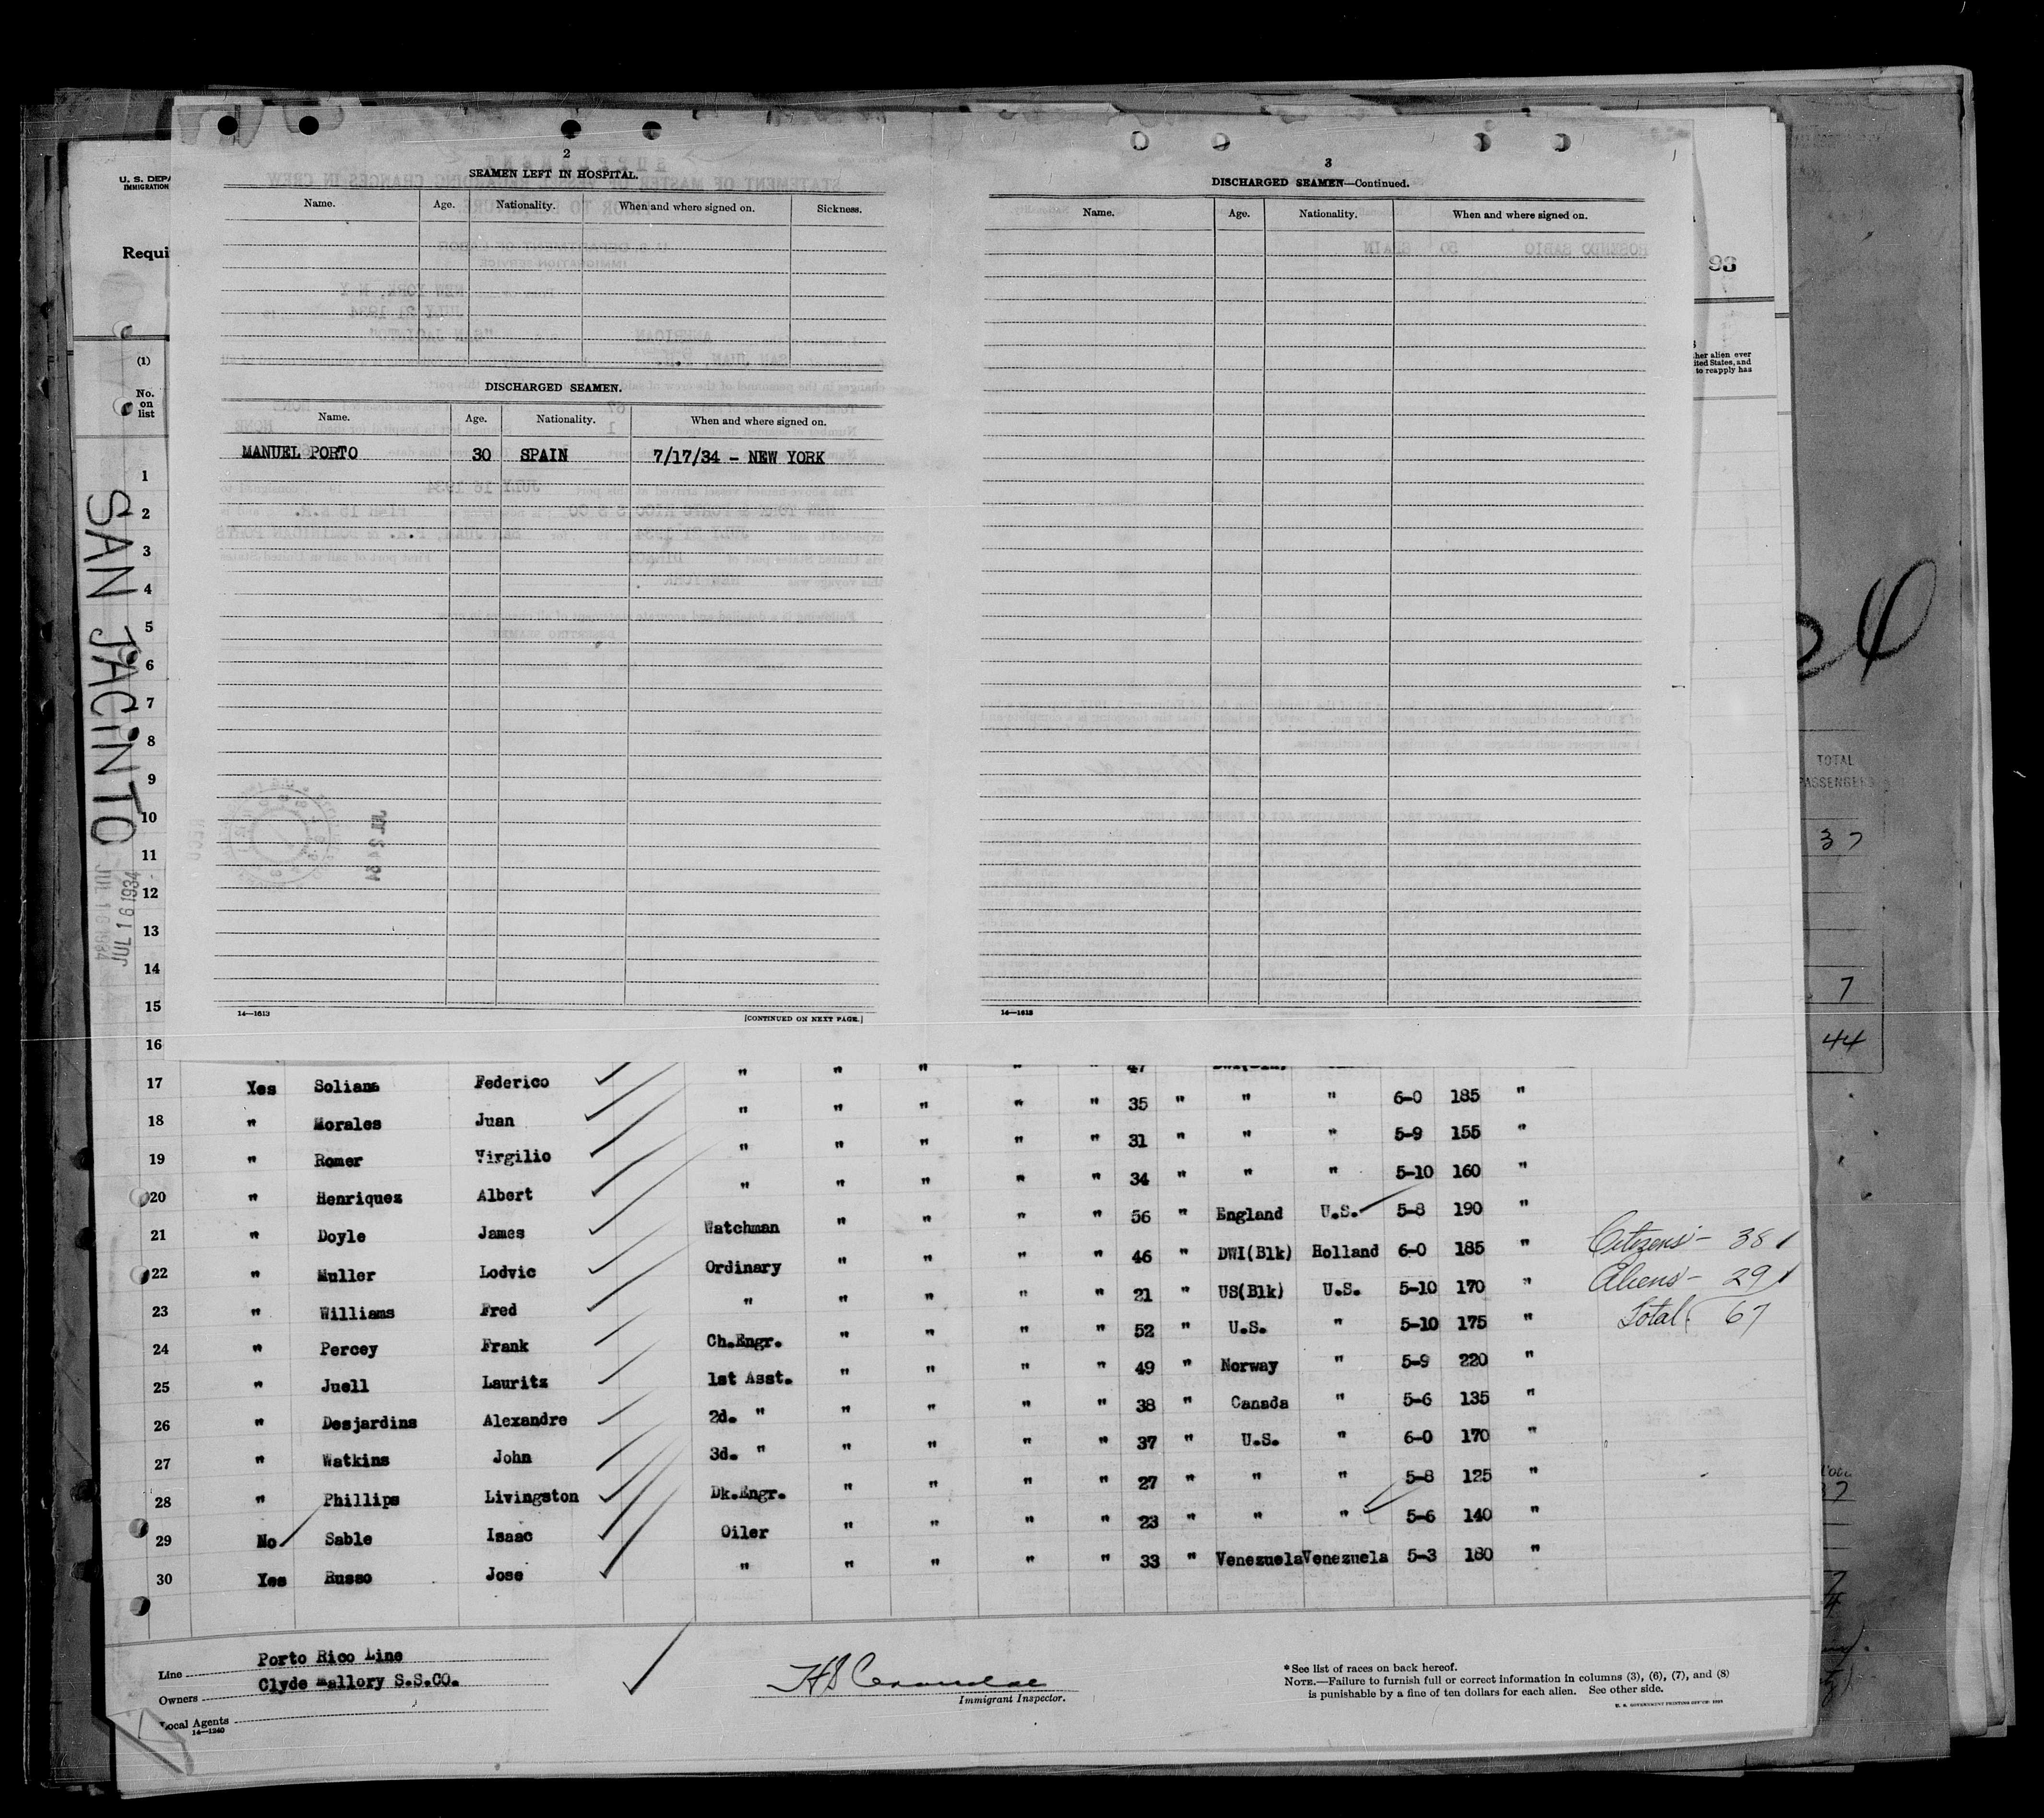 2
SEAMEN LEFT IN HOSPITAL.
Name. Age. Nationality. When and where signed on. Sickness.
DISCHARGED SEAMEN.
Name. Age. Nationality. When and where signed on.
MANUEL PORTO 30 SPAIN 7/17/34 - NEW YORK
14—1613
[CONTINUED ON NEXT PAGE.]
3
DISCHARGED SEAMEN—Continued.
Name. Age. Nationality. When and where signed on.
14—1613
U. S. DEPA
IMMIGRATION
Requi
93
her alien ever
ited States, and
to reapply has
(1)
No.
on
list
1
2
3
4
5
6
7
8
9
10
11
12
13
14
15
16
SAN JACINTO
JUL 16 1934
JUL 16 1934
TOTAL
PASSENGERS
37
7
44
47
17 Yes Soliana Federico " " " " " 35 " " " 6-0 185 "
18 " Morales Juan " " " " " 31 " " " 5-9 155 "
19 " Romer Virgilio " " " " " 34 " " " 5-10 160 "
20 " Henriquez Albert " " " " " 56 " England U.S. 5-8 190 "
21 " Doyle James Watchman " " " " 46 " DWI(Blk) Holland 6-0 185 "
22 " Muller Lodvic Ordinary " " " " 21 " US(Blk) U.S. 5-10 170 "
23 " Williams Fred " " " " " 52 " U.S. " 5-10 175 "
24 " Percey Frank Ch.Engr. " " " " 49 " Norway " 5-9 220 "
25 " Juell Lauritz 1st Asst. " " " " 38 " Canada " 5-6 135 "
26 " Desjardins Alexandre 2d. " " " " " 37 " U.S. " 6-0 170 "
27 " Watkins John 3d. " " " " " 27 " " " 5-8 125 "
28 " Phillips Livingston Dk.Engr. " " " " 23 " " " 5-6 140 "
29 No Sable Isaac Oiler " " " " 33 " Venezuela Venezuela 5-3 180 "
30 Yes Russo Jose " " " " "
Citizens - 38
Aliens - 29
Total 67
Line Porto Rico Line
Owners Clyde Mallory S.S.CO.
Local Agents
14—1240
Immigrant Inspector.
* See list of races on back hereof.
NOTE.—Failure to furnish full or correct information in columns (3), (6), (7), and (8)
is punishable by a fine of ten dollars for each alien. See other side.